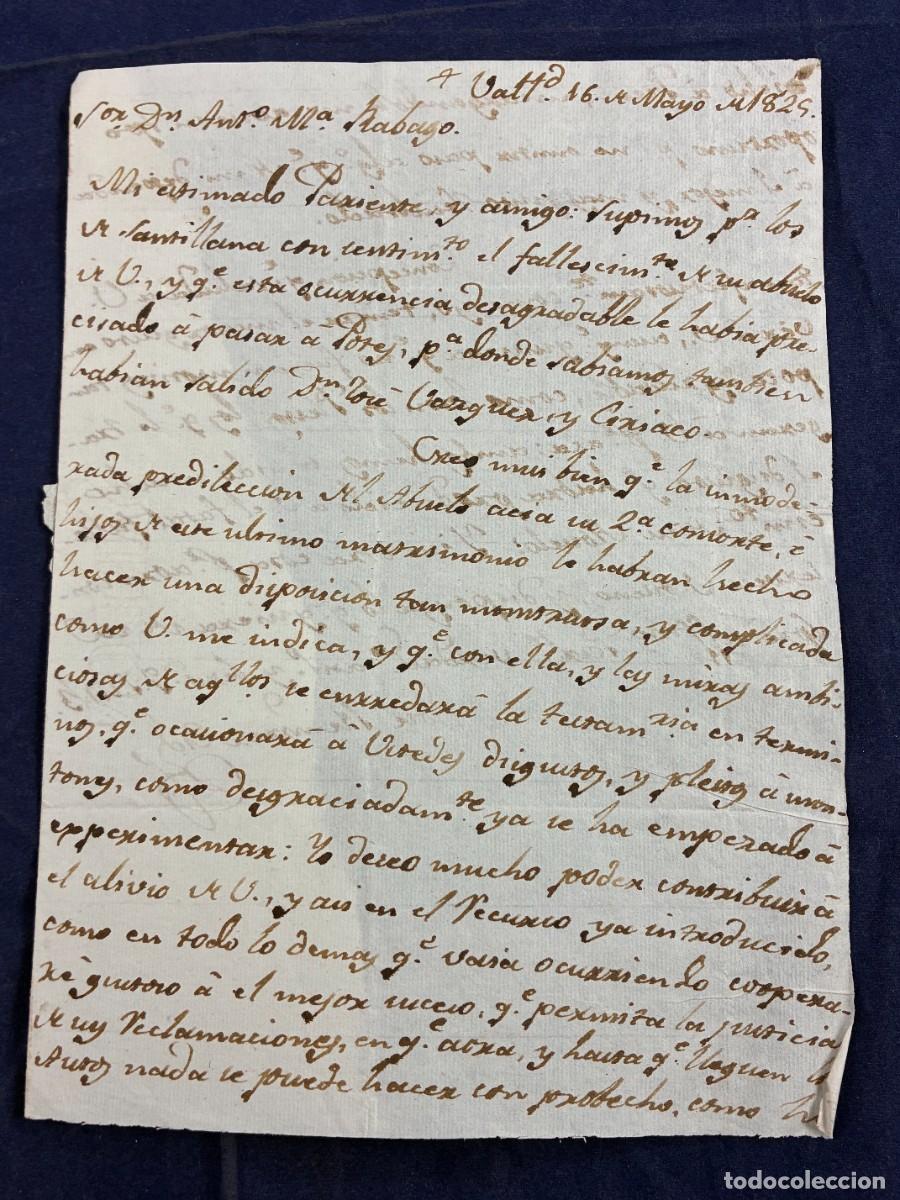 + Vall.d 16. de Mayo de 1825.
Sor. Dn. Anto. Ma. Rabago.
Mi estimado Pariente y amigo: Supimos pr. los
de Santillana con sentim.to el fallescim.to de su abuelo
de V., y q.e esta ocurrencia desagradable le habia pre-
cisado á pasar á Potes, p.a donde sabiamos tambien
habian salido Dn. José Vazquez, y Ciriaco.
Creo mui bien q.e la inmode-
rada predileccion del Abuelo acia su 2.a consorte, é
hijos de este ultimo matrimonio le habran hecho
hacer una disposicion tan monstruosa, y complicada
como V. me indica, y q.e con ella, y las miras ambi-
ciosas de aq.llos se enrredará la testam.ria en termi-
nos, q.e ocasionará á Ustedes disgustos, y pleitos á mon-
tones, como desgraciadam.te ya se ha empezado á
experimentar: Yo deseo mucho poder contribuir á
el alivio de V., y asi en el recurso ya introducido,
como en todo lo demas q.e vaia ocurriendo coopera-
ré gustoso á el mejor suceso, q.e permita la justicia
de sus reclamaciones, en q.e aora, y hasta q.e lleguen los
Autos nada se puede hacer con probecho, como
todocoleccion